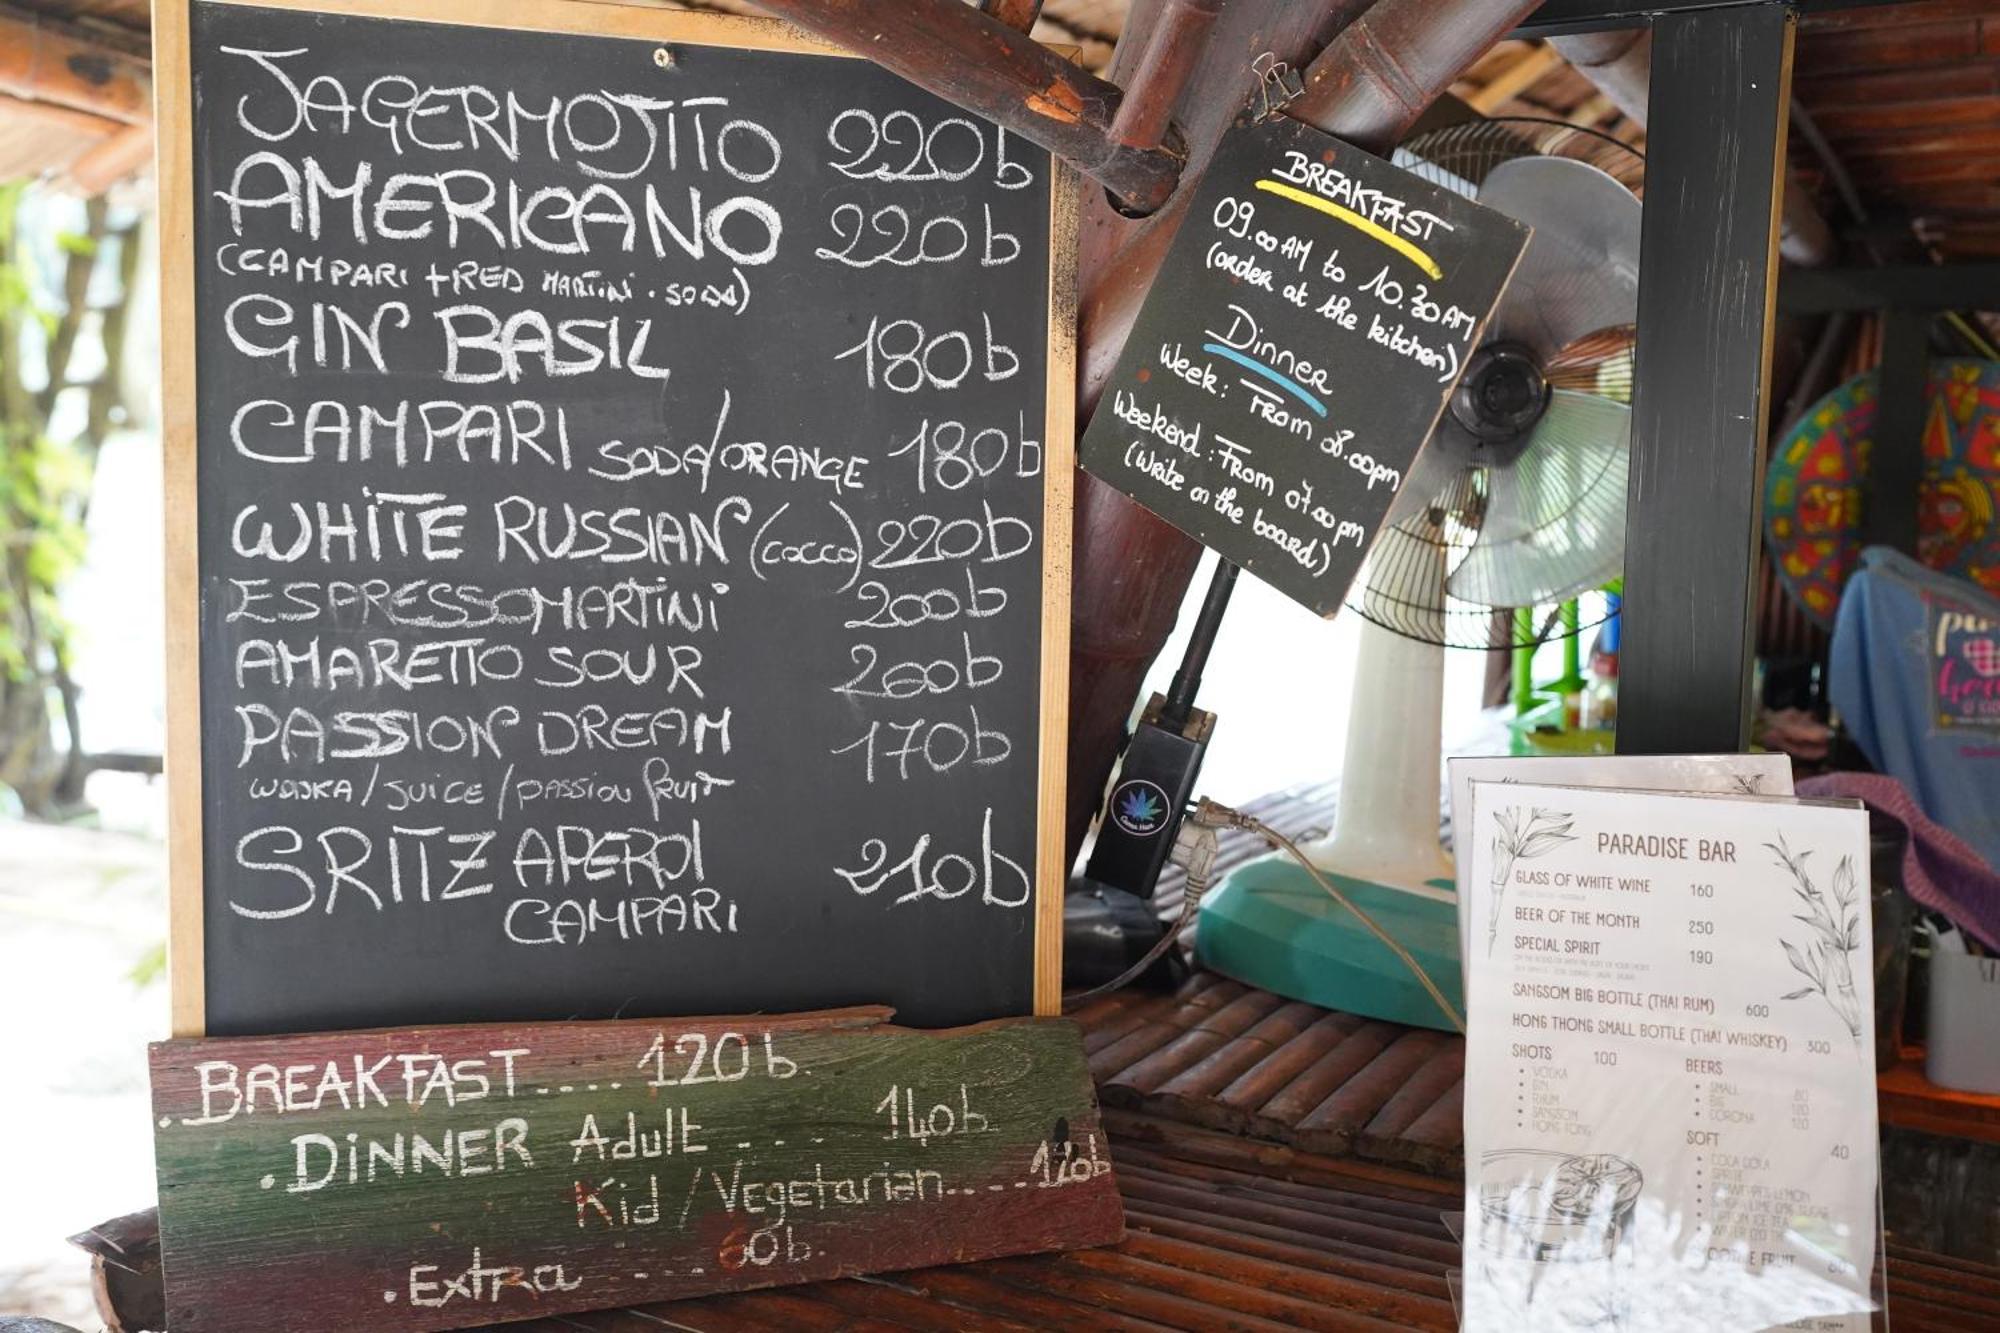 JAGERMOJITO 220b
AMERICANO 220b
(CAMPARI + RED MARTINI . SODA)
GIN BASIL 180b
CAMPARI SODA/ORANGE 180b
WHITE RUSSIAN (cocco) 220b
ESPRESSOMARTINI 200b
AMARETTO SOUR 200b
PASSION DREAM 170b
WODKA / JUICE / passion fruit
SRITZ APEROL 210b
CAMPARI
. BREAKFAST .... 120b.
. DINNER Adult ... 140b.
Kid / Vegetarian .... 120b
. Extra .... 60b.
BREAKFAST
09.00 AM to 10.30 AM
(order at the kitchen)
Dinner
Week: From 08.00pm
Weekend: From 07.00pm
(Write on the board)
PARADISE BAR
GLASS OF WHITE WINE 160
BEER OF THE MONTH 250
SPECIAL SPIRIT 190
SANGSOM BIG BOTTLE (THAI RUM) 600
HONG THONG SMALL BOTTLE (THAI WHISKEY) 300
SHOTS 100
• VODKA
• GIN
• RHUM
• SANGSOM
• HONG TONG
BEERS
• SMALL 80
• BIG
• CORONA
SOFT 40
• COCA COLA